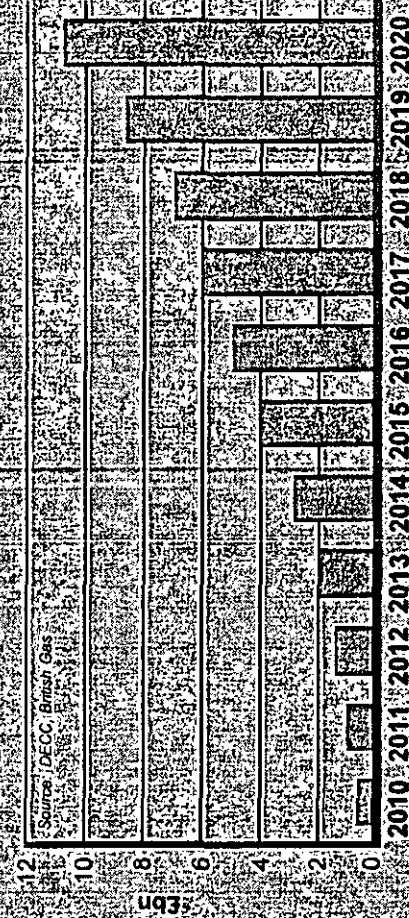 12
Source: DECC, British Gas
10
8
6
4
2
0
£bn
2010 2011 2012 2013 2014 2015 2016 2017 2018 2019 2020